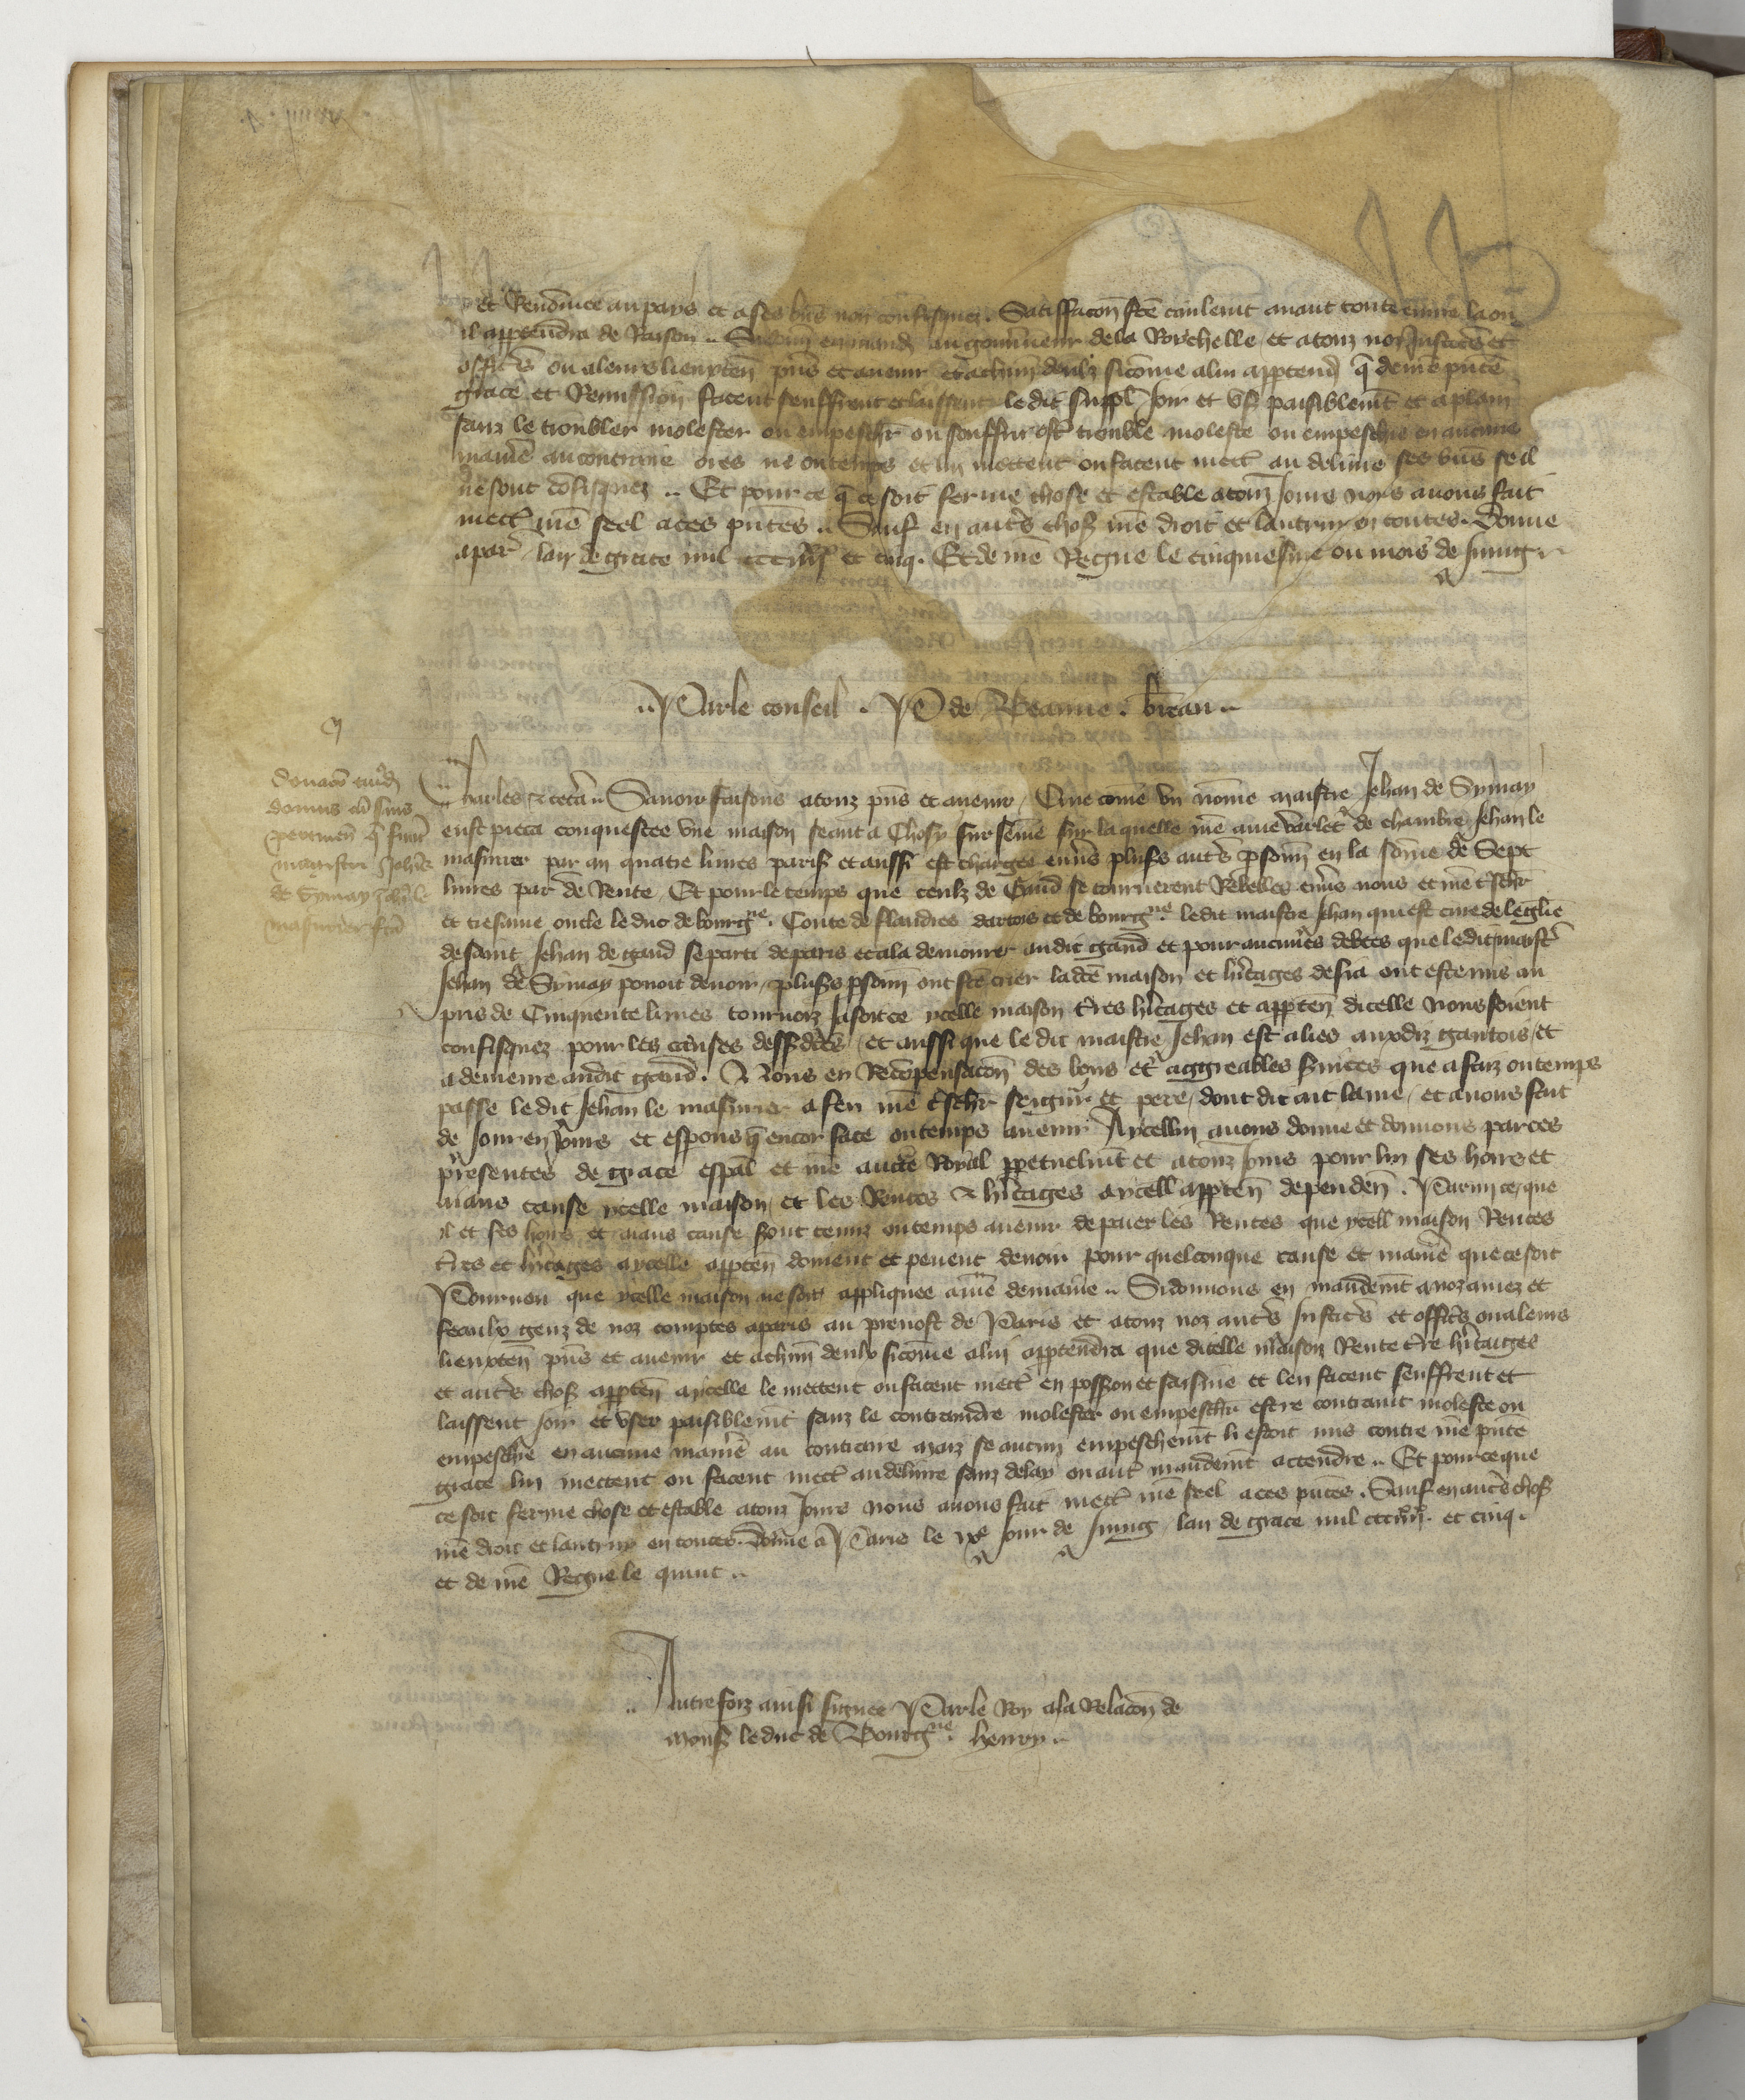 et Renōmee au pays et a ses biēs non confisquez. Satiffacōn fcē civilemt avant toute euvre la ou
il apptendra de Raison .. Si donn en mand au gouvneur de la Rochelle et a touz noz Justicēs et
officēs ou a leurs lieuxten pns et avenir et a chun deulz si cōme a lui apptend q̄ de nrē pnte
grace et Remission facent seuffrent et laissent le dit suppl Joir et us paisiblemt et a plain
sanz le troubler molester ou empeschr ou souffrir estr trouble moleste ou empeschie en aucune
maniē au contraire ores ne ou temps et lui mettent ou facent mectr au delivre ses biēs se il
ne sont cōfisquez .. Et pour ce q̄ ce soit ferme chose et estable a touz Jours nous avons fait
mectr nrē seel a ces pntes .. Sauf en autrs chos nrē droit et lautruy en toutes. Donne
a par lan de grace mil ccciiiixx et cinq. Et de nrē Regne le cinquiesme ou mois de Juing
.. Par le conseil . P de Beaune . bleau ..
Donacō cuiusd
domus cū suis
pertinen q̄ fuit
magistri Johis
de Symay Johi le
masurier fcā
Charles & cetā .. Savoir faisons a touz pns et avenir / Que cōme un nōme maistre Jehan de Symay
eust pieca conquestee une maison seant a Choisy sur seine sur la quelle nrē ame varlet de chambre Jehan le
masurier par an quatre livres paris et aussi est chargee envs plusrs autrs psonn en la sōme de Sept
livres par de Rente / Et pour le temps que ceulz de Gand se tournerent Rebelles envs nous et nrē trschr
et tresame oncle le duc de bourgne. Conte de flandres dartois et de bourgne. le dit maistre Jehan qui est cure de leglise
de saint Jehan de gand se parti de paris et ala demourer au dit gand et pour aucunes debtes que le dit maistr
Jehan de Symay povoit devoir / plusrs psonn ont fcē crier la dcē maison et hritages de sia ont este mis au
pris de Cinquente livres tournoiz Ja soit ce ycelle maison trres hritages et apptēn dicelle nous soient
confisquez pour les causes dessdictes / et aussi que le dit maistre Jehan est aliez auxdiz gantois / et
a demeure audit gand. Nous en Recōpensacōn des bons et aggreables services que a faiz ou temps
passe le dit Jehan le masurier a feu nrē trschr seignr et pere / dont dit ait lame / et a nous fait
de Jour en Jours et espons q̄ encor face ou temps avenir A ycellui avons donne et donnons par ces
presentes de grace espal et nrē aucte Royal ppetuelmt et a touz Jours pour lui ses hoirs et
aians cause ycelle maison / et les Rentes & hritages a ycell apptēn dependen. Parmi ce que
il et ses hoirs et aians cause sont tenuz ou temps avenir de paier les Rentes que ycell maison Rentes
trres et hritages a ycelle apptēn doivent et pevent devoir pour quelconque cause et maniē que ce soit
Pourveu que ycelle maison ne soit appliquee a nrē demaine .. Si donnons en mandemt a noz amez et
feaulx genz de noz comptes a paris au prevost de Paris et a touz noz autrs Justicrs et officrs ou a leurs
lieuxten pns et avenir et a chun deulx si cōme a lui apptendra que dicelle maison Rente trre hritaiges
et autrs chos apptēn a ycelle le mettent ou facent mectr en posson et saisine et len facent seuffrent et
laissent Joir et user paisiblemt sanz le contraindre molester ou empeschr estre contraint moleste ou
empeschie en aucune maniē au contraire maiz se aucun empeschemt li estoit mis contre nrē pnte
grace lui mettent ou facent mectr au delivre sanz delay ou autr mandemt actendre .. Et pour ce que
ce soit ferme chose et estable a touz Jours nous avons fait mectr nrē seel a ces pntes. Sauf en autrs chos
nrē droit et lautruy en toutes. Donne a Paris le ixe Jour de Juing lan de grace mil ccciiiixx. et cinq.
et de nrē Regne le quint ..
.. Autrefoiz ainsi signee Par le Roy a la Relacōn de
mons le duc de Bourgne. henry ..